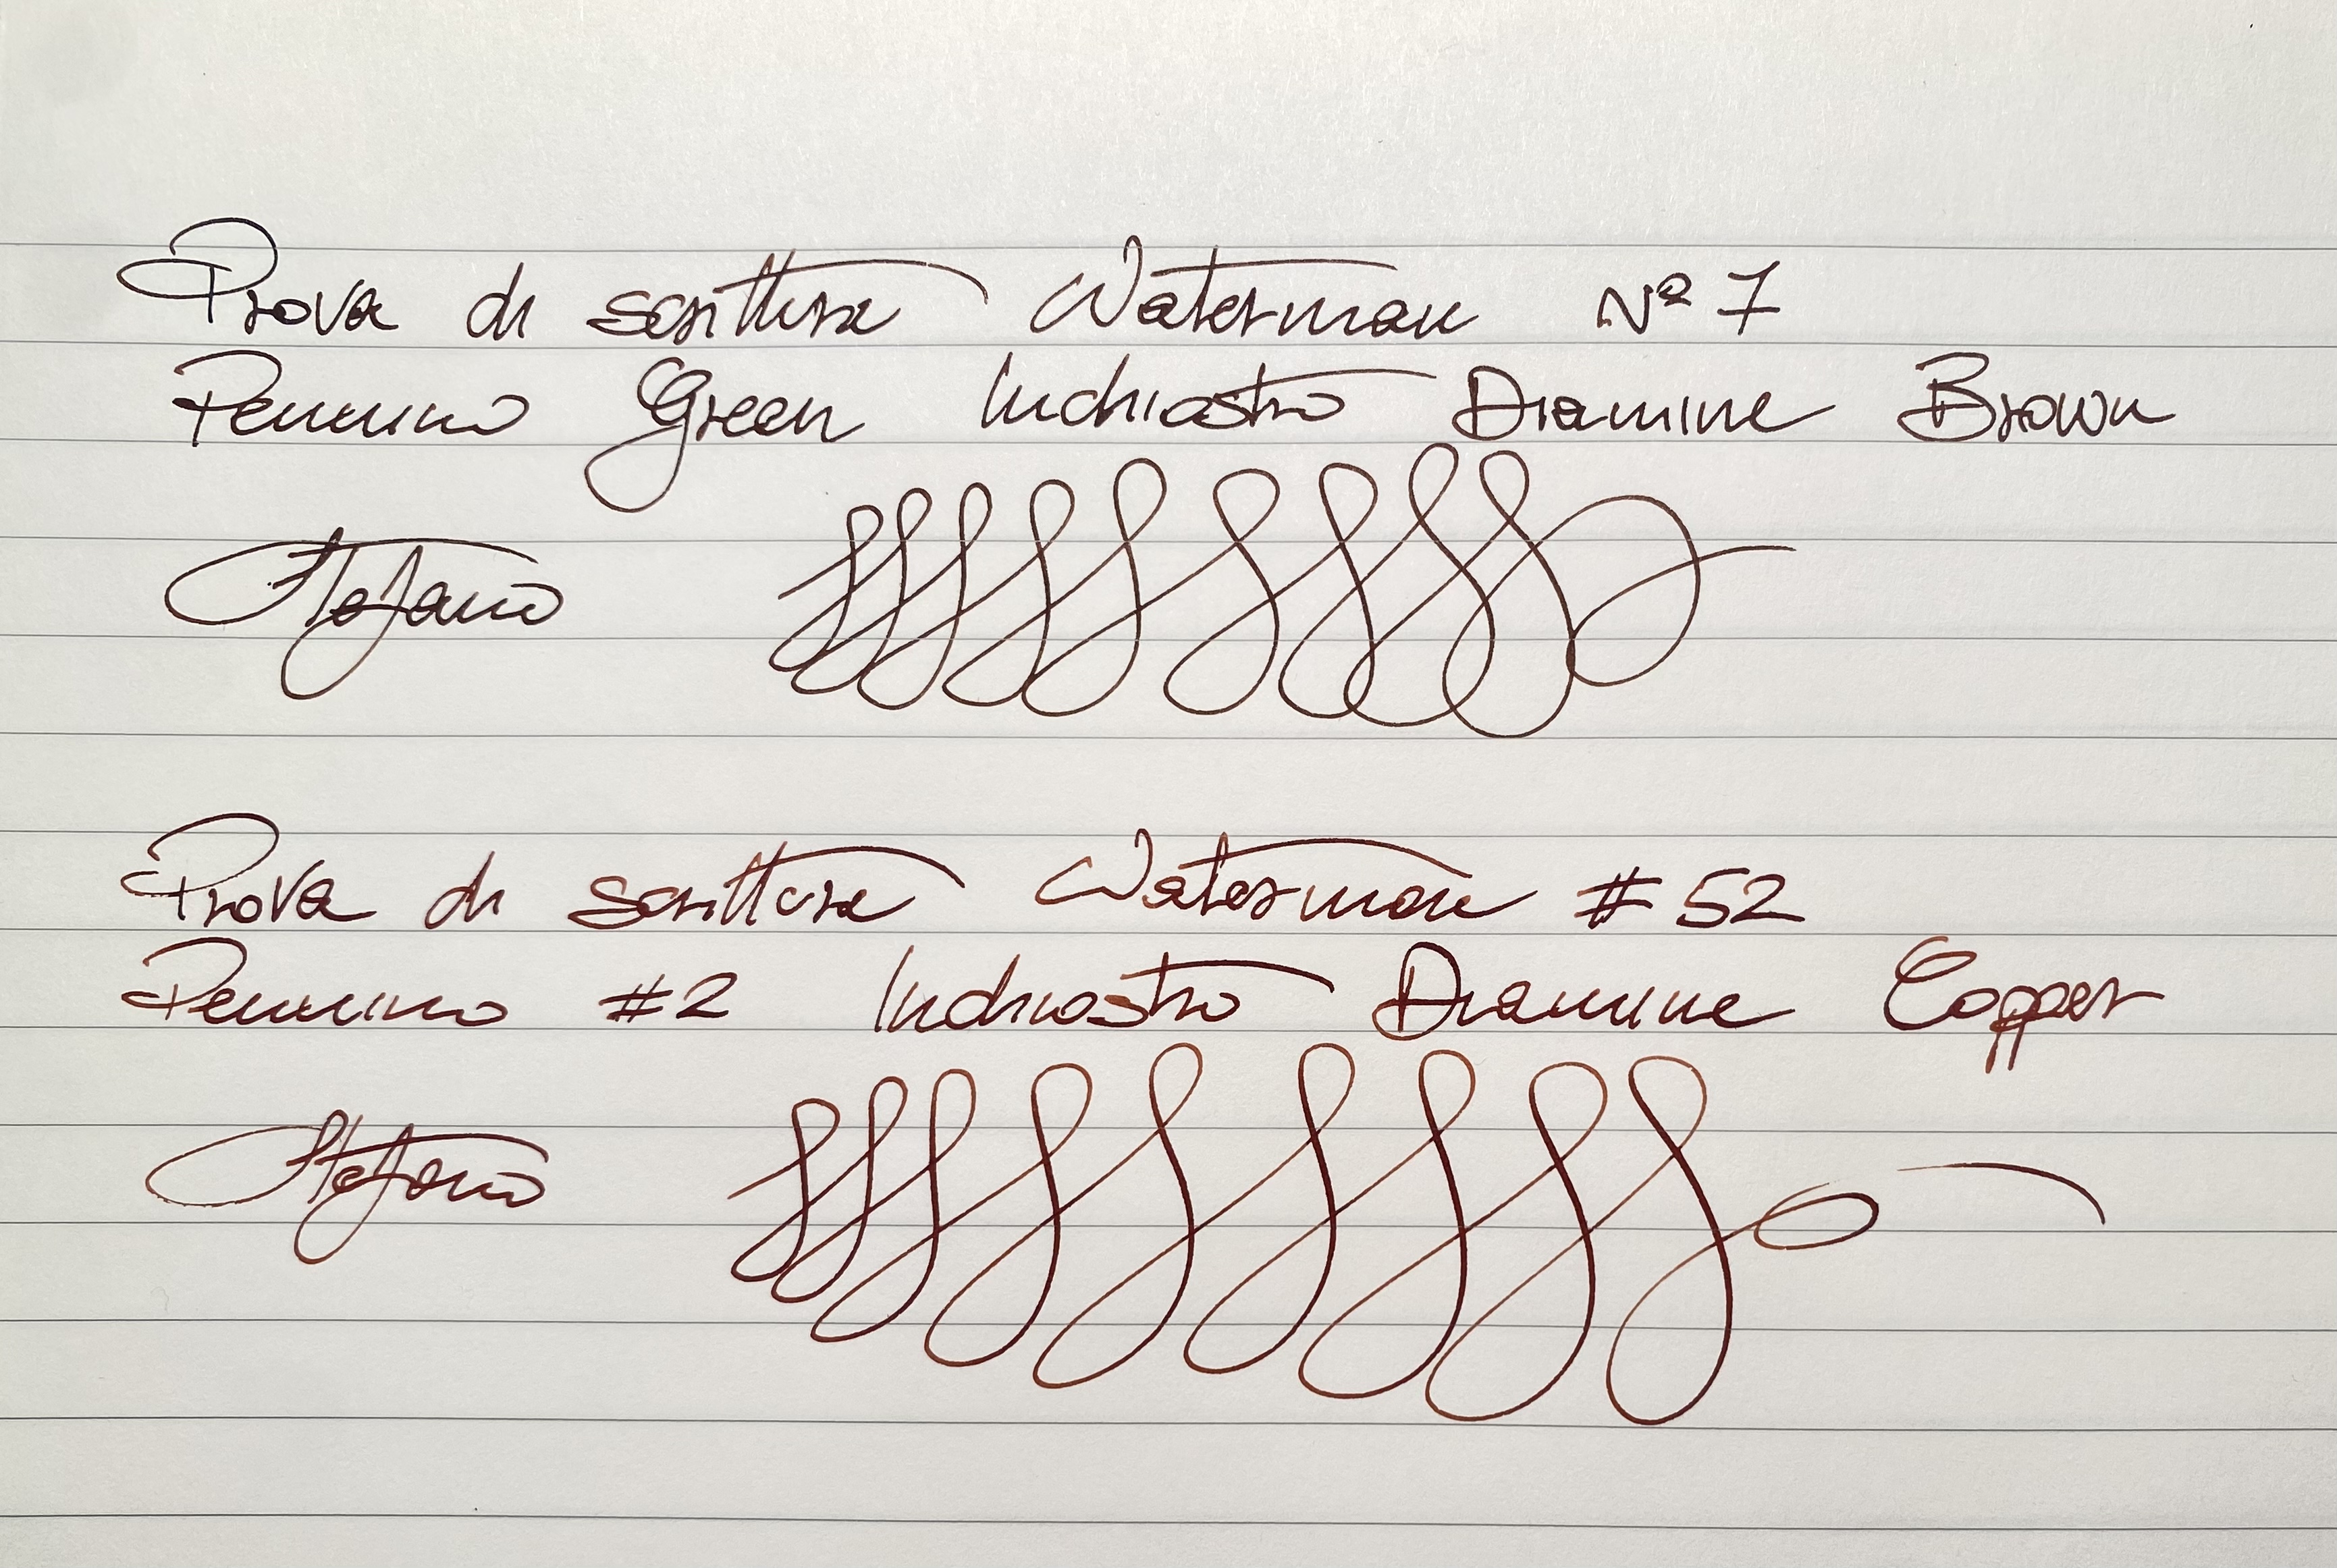 Prova di scrittura Waterman Nº 7
Pennino Green Inchiostro Diamine Brown
Stefano
Prova di scrittura Waterman #52
Pennino #2 Inchiostro Diamine Copper
Stefano